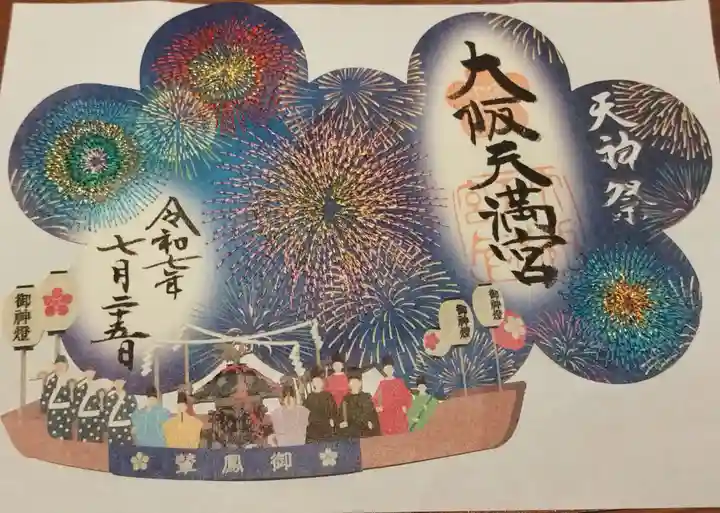 天神祭
大阪天満宮
令和七年
七月二十五日
御神燈
御神燈
御鳳輦